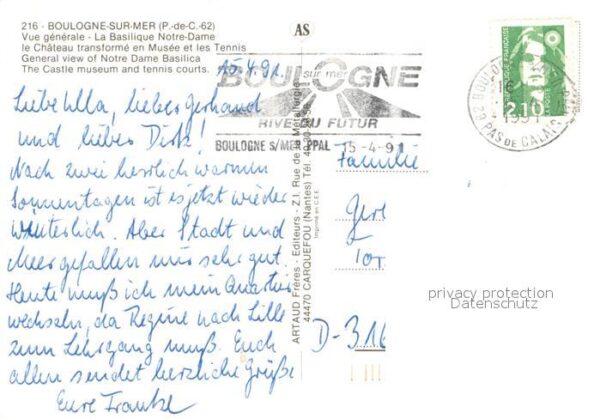 216 - BOULOGNE-SUR-MER (P.-de-C.-62)
Vue générale - La Basilique Notre-Dame
le Château transformé en Musée et les Tennis
General view of Notre Dame Basilica
The Castle museum and tennis courts.
AS
15.4.91.
Liebe Ulla, lieber Gerhard
und lieber Dirk!
Nach zwei herrlich warmen
Sonnentagen ist es jetzt wieder
winterlich. Aber Stadt und
Meer gefallen mir sehr gut.
Heute muß ich mein Quartier
wechseln, da Regine nach Lille
zum Lehrgang muß. Euch
allen sendet herzliche Grüße
Eure Frauke
BOULOGNE
sur mer
RIVE DU FUTUR
BOULOGNE S/MER PPAL 15-4-91
ARTAUD Frères - Editeurs - Z.I. Rue de la Métallurgie
44470 CARQUEFOU (Nantes) Tél. 40
Imprimé en C.E.E.
Familie
Ger
Tor
D-316
2,10
62 BOULO
16
1991
PAS DE CALAIS
privacy protection
Datenschutz